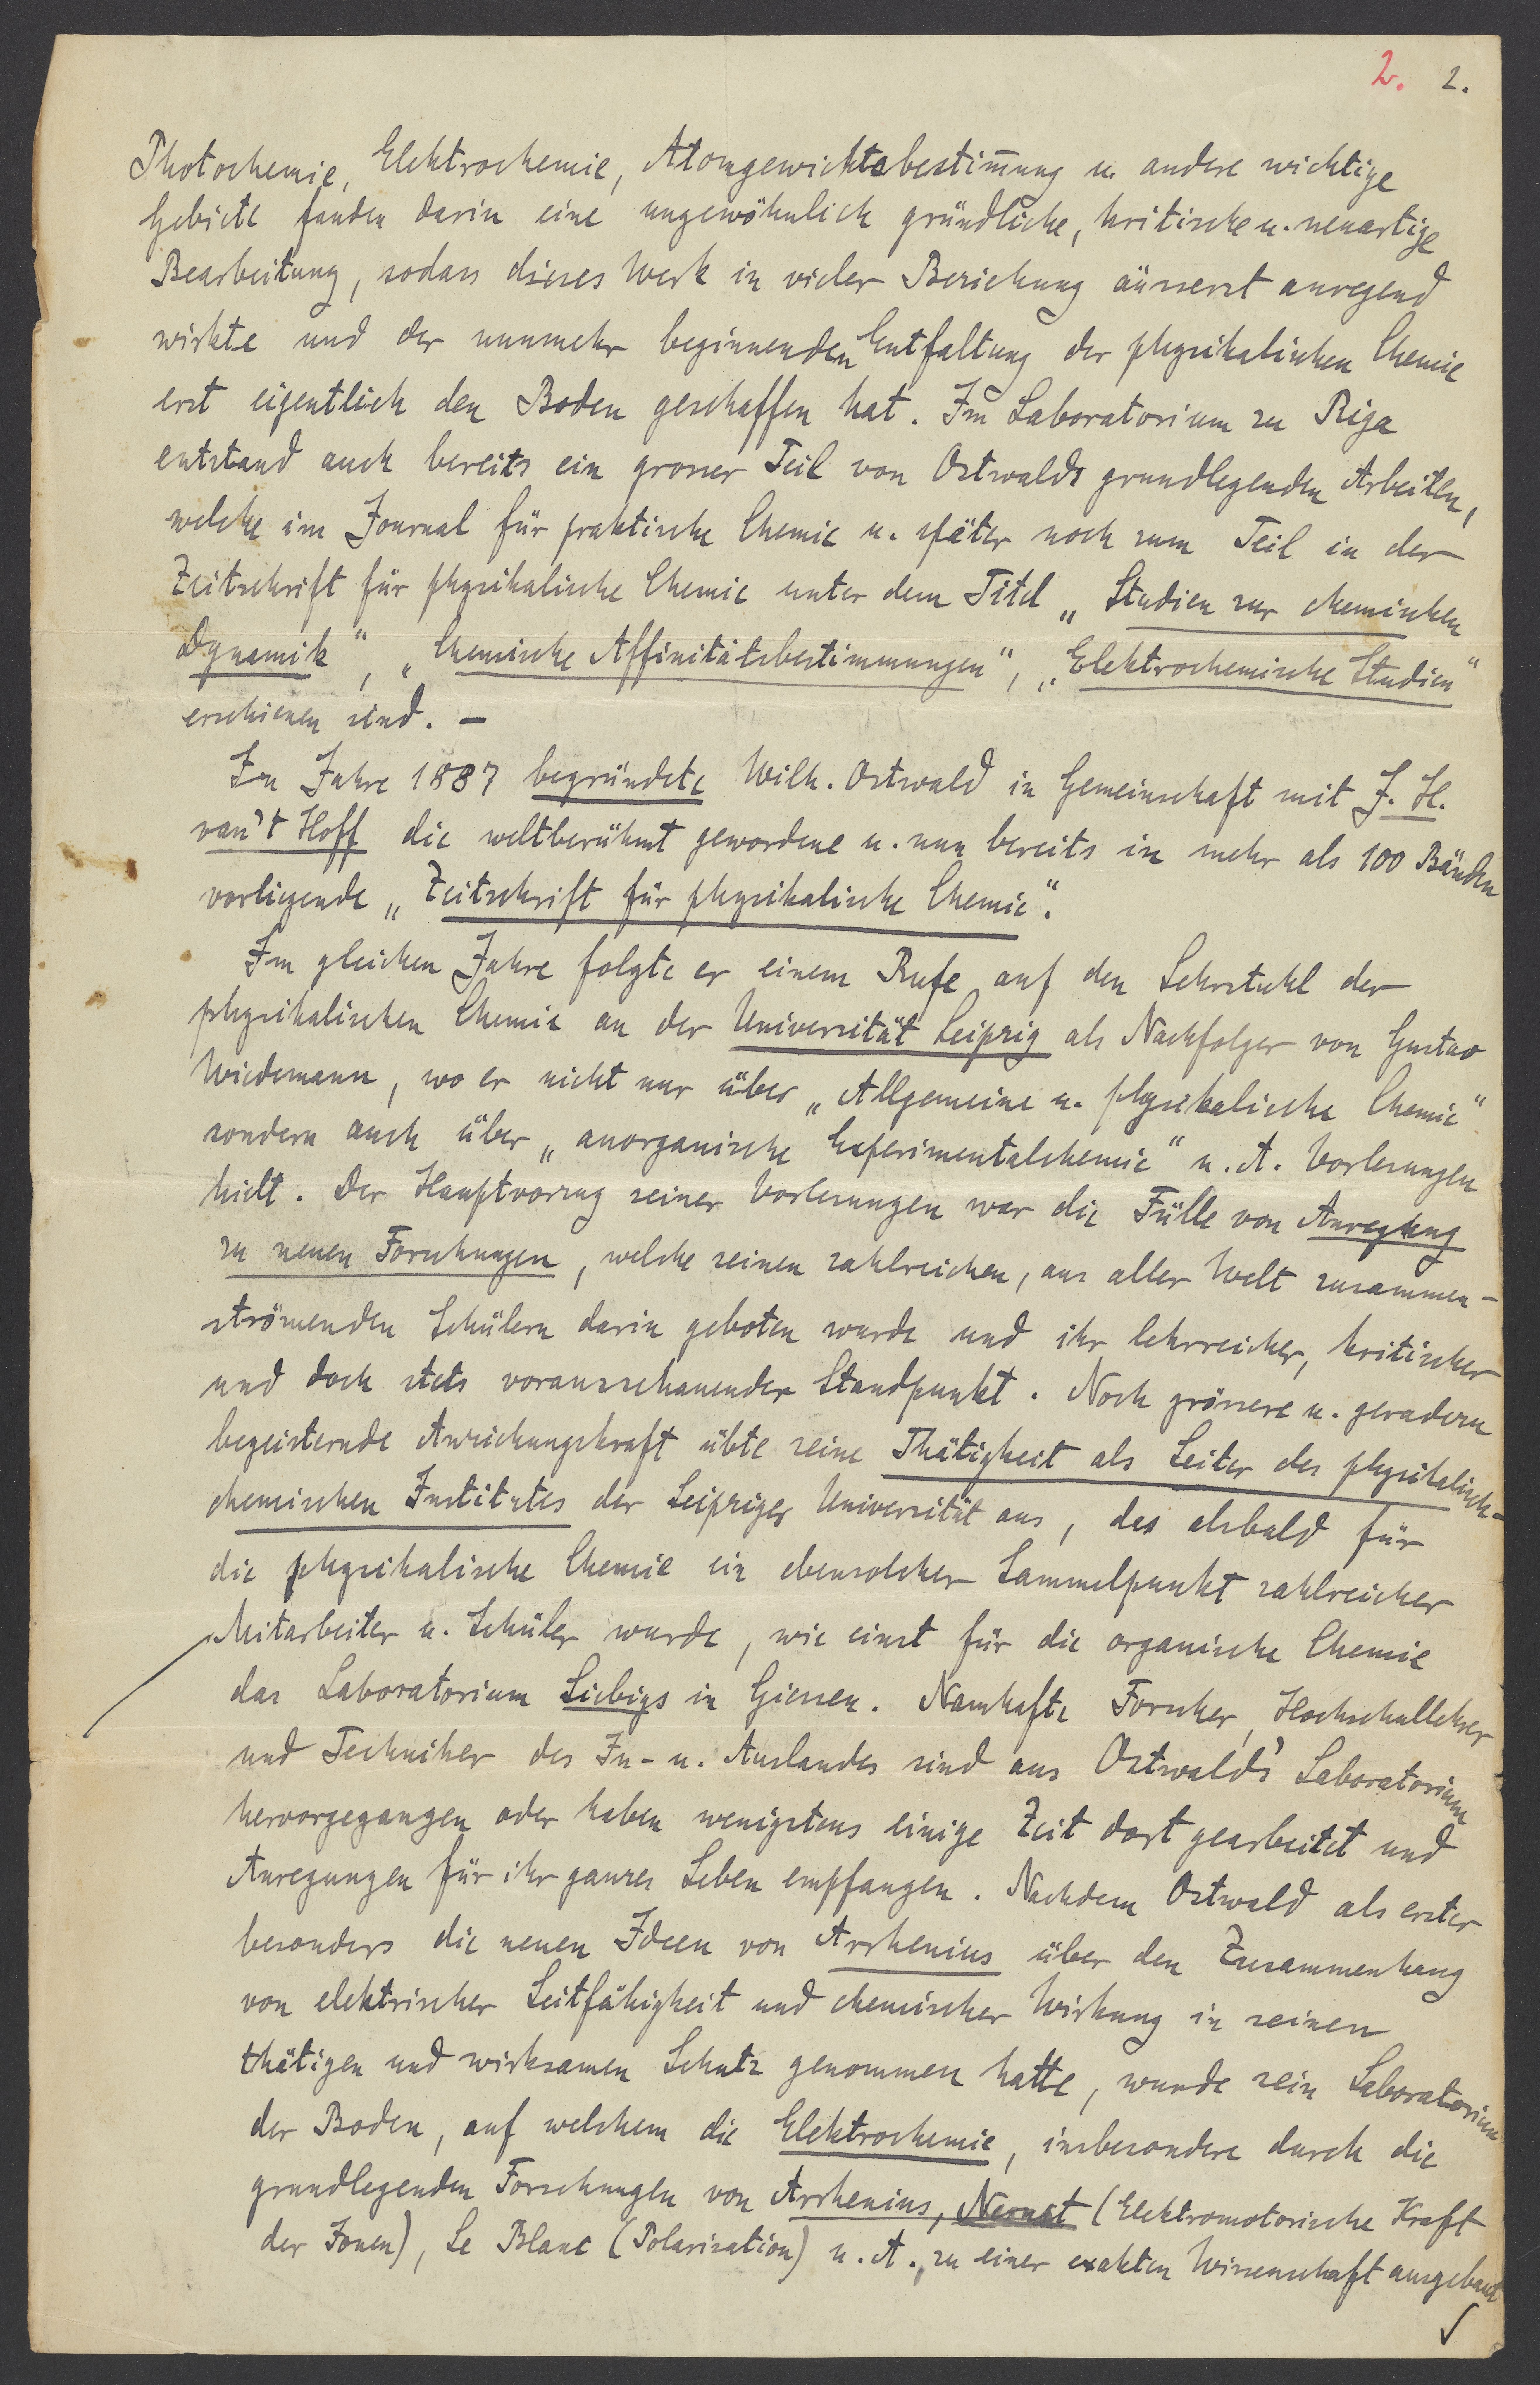 2. 2.
Photochemie, Elektrochemie, Atomgewichtsbestim̅ung u. andere wichtige
Gebiete fanden darin eine ungewöhnlich gründliche, kritische u. neuartige
Bearbeitung, sodass dieses Werk in vieler Beziehung äusserst anregend
wirkte und der nunmehr beginnenden Entfaltung der physikalischen Chemie
erst eigentlich den Boden geschaffen hat. Im Laboratorium zu Riga
entstand auch bereits ein grosser Teil von Ostwalds grundlegenden Arbeiten,
welche im Journal für praktische Chemie u. später noch zum Teil in der
Zeitschrift für physikalische Chemie unter dem Titel „Studien zur chemischen
Dynamik“, „Chemische Affinitätsbestimmungen“, „Elektrochemische Studien“
erschienen sind. –
Im Jahre 1887 begründete Wilh. Ostwald in Gemeinschaft mit J. H.
van't Hoff die weltberühmt gewordene u. nun bereits in mehr als 100 Bänden
vorliegende „Zeitschrift für physikalische Chemie“.
Im gleichen Jahre folgte er einem Rufe auf den Lehrstuhl der
physikalischen Chemie an der Universität Leipzig als Nachfolger von Gustav
Wiedemann, wo er nicht nur über „Allgemeine u. physikalische Chemie“
sondern auch über „anorganische Experimentalchemie“ u. A. Vorlesungen
hielt. Der Hauptvorzug seiner Vorlesungen war die Fülle von Anregung
zu neuen Forschungen, welche seinen zahlreichen, aus aller Welt zusammen-
strömenden Schülern darin geboten wurde und ihr lehrreicher, kritischer
und doch stets vorausschauender Standpunkt. Noch grössere u. geradezu
begeisternde Anziehungskraft übte seine Thätigkeit als Leiter des physikalisch-
chemischen Institutes der Leipziger Universität aus, das alsbald für
die physikalische Chemie ein ebensolcher Sammelpunkt zahlreicher
Mitarbeiter u. Schüler wurde, wie einst für die organische Chemie
das Laboratorium Liebigs in Giessen. Namhafte Forscher, Hochschullehrer
und Techniker des In- u. Auslandes sind aus Ostwald's Laboratorium
hervorgegangen oder haben wenigstens einige Zeit dort gearbeitet und
Anregungen für ihr ganzes Leben empfangen. Nachdem Ostwald als erster
besonders die neuen Ideen von Arrhenius über den Zusammenhang
von elektrischer Leitfähigkeit und chemischer Wirkung in seinen
thätigen und wirksamen Schutz genommen hatte, wurde sein Laboratorium
der Boden, auf welchem die Elektrochemie, insbesondere durch die
grundlegenden Forschungen von Arrhenius, Nernst (Elektromotorische Kraft
der Ionen), Le Blanc (Polarisation) u. A., zu einer exakten Wissenschaft ausgebaut